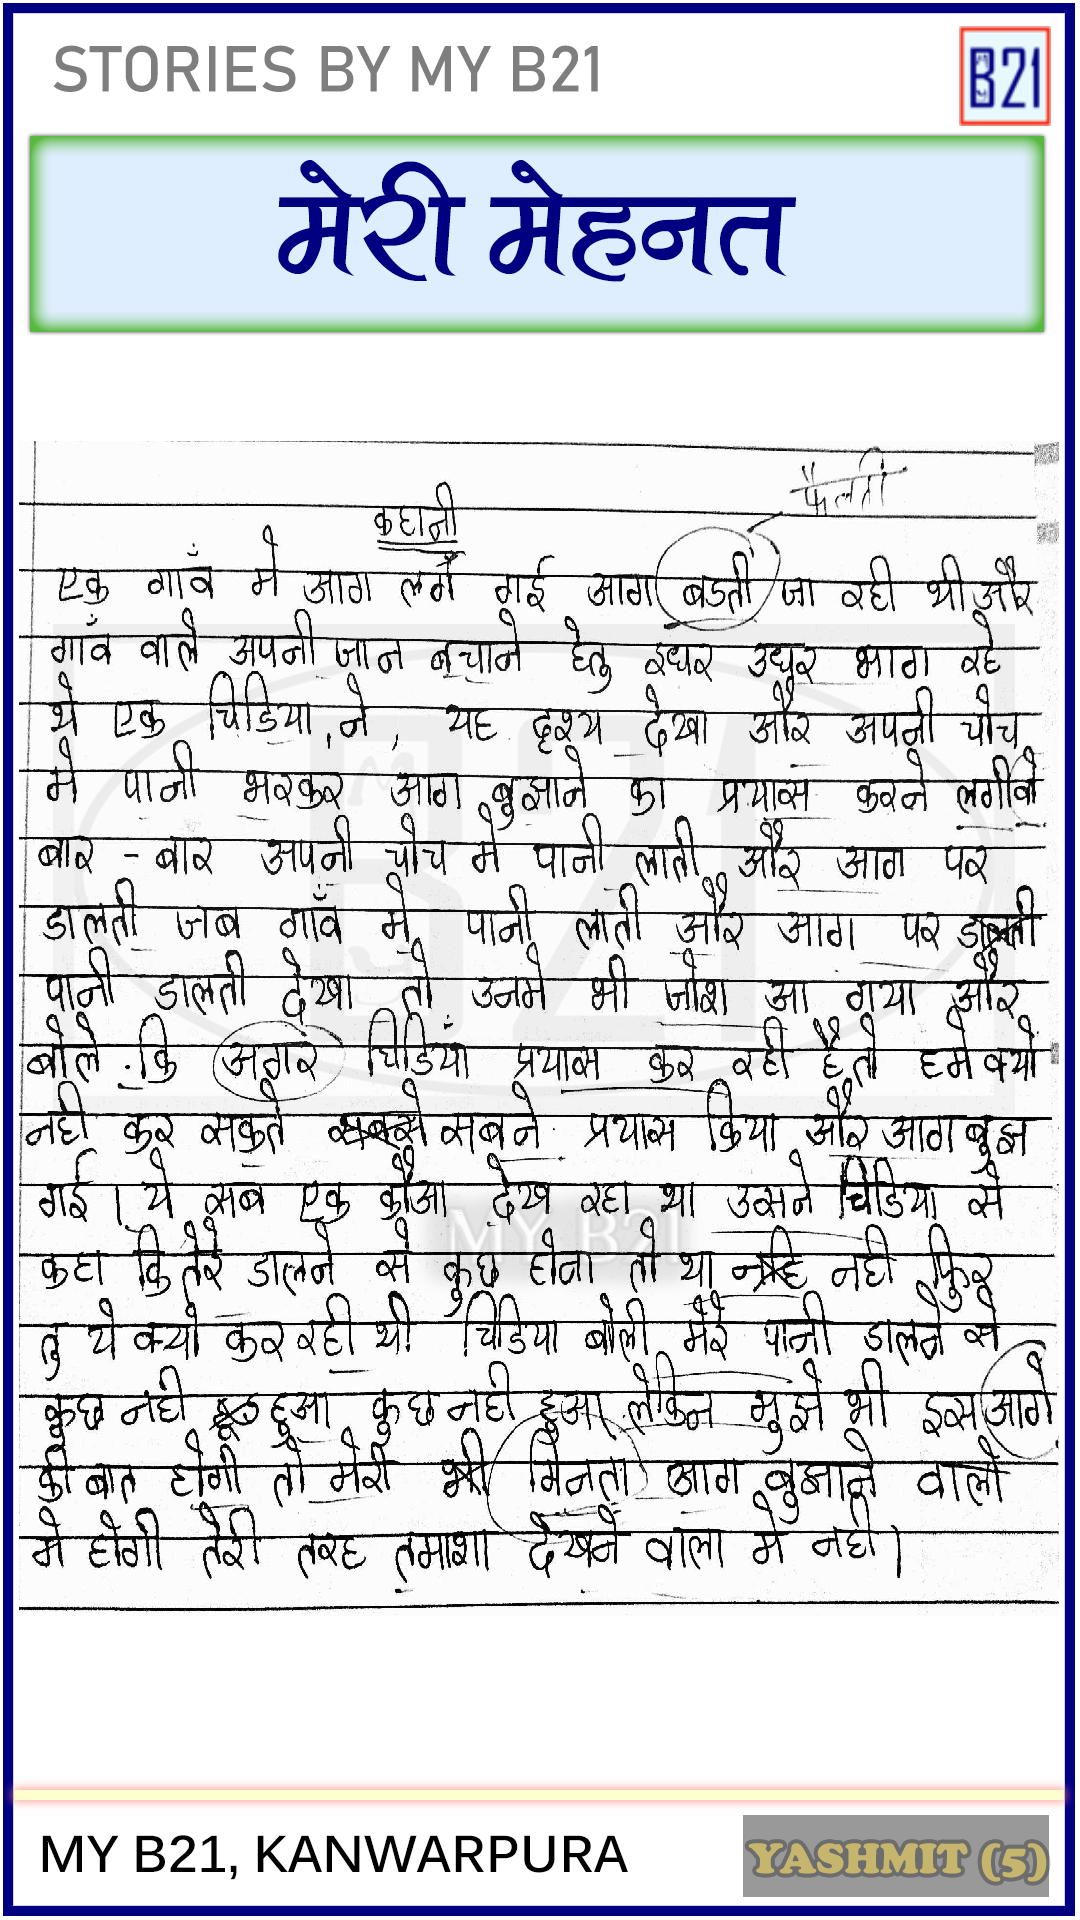 STORIES BY MY B21
B21
मेरी मेहनत
फैलती
कहानी
एक गाँव मे आग लगे गई आग बडती जा रही थी और
गाँव वाले अपनी जान बचाने हेतु इधर उधर भाग रहे
थे एक चिडिया ने यह दृश्य देखा और अपनी चोच
मे पानी भरकर आग बुझाने का प्रयास करने लगी वो
बार - बार अपनी चोच मे पानी लाती और आग पर
डालती जब गाँव मे पानी लाती और आग पर डालती
पानी डालती देखा तो उनमे भी जोश आ गया और
बोले कि अगर चिडियाँ प्रयास कर रही है तो हमे क्यो
नही कर सकते सबने प्रयास किया और आग बुझ
गई। ये सब एक कौआ देख रहा था उसने चिडिया से
कहा कि तेरे डालने से कुछ होना तो था नही फिर
तु ये क्यो कर रही थी चिडिया बोली मेरे पानी डालने से
कुछ नही हुआ कुछ नही हुआ लेकिन मुझे भी इस आगे
की बात होगी तो मेरी भी मिनता आग बुझाने वालो
मे होगी तेरी तरह तमाशा देखने वाला मे नही।
MY B21
MY B21, KANWARPURA
YASHMIT (5)